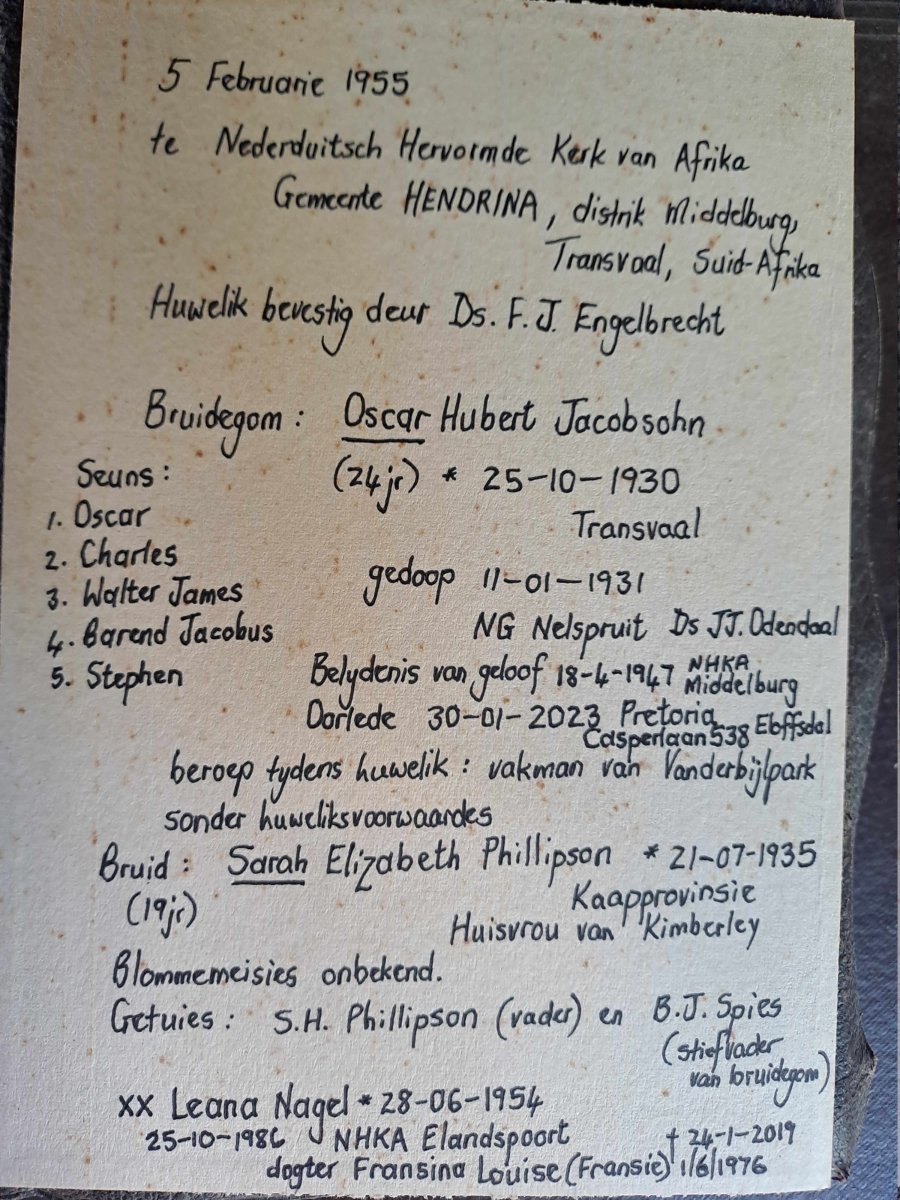 5 Februarie 1955
te Nederduitsch Hervormde Kerk van Afrika
Gemeente HENDRINA, distrik Middelburg,
Transvaal, Suid-Afrika
Huwelik bevestig deur Ds. F. J. Engelbrecht
Bruidegom : Oscar Hubert Jacobsohn
(24jr) * 25-10-1930
Transvaal
Seuns :
1. Oscar
2. Charles
3. Walter James
4. Barend Jacobus
5. Stephen
gedoop 11-01-1931
NG Nelspruit Ds JJ. Odendaal
Belydenis van geloof 18-4-1947 NHKA
Middelburg
Oorlede 30-01-2023 Pretoria
Casperlaan 538 Eloffsdal
beroep tydens huwelik : vakman van Vanderbijlpark
sonder huweliksvoorwaardes
Bruid : Sarah Elizabeth Phillipson * 21-07-1935
(19jr) Kaapprovinsie
Huisvrou van Kimberley
Blommemeisies onbekend.
Getuies : S.H. Phillipson (vader) en B.J. Spies
(stiefvader
van bruidegom)
xx Leana Nagel * 28-06-1954
25-10-1986 NHKA Elandspoort † 24-1-2019
dogter Fransina Louise (Fransie) 1/6/1976